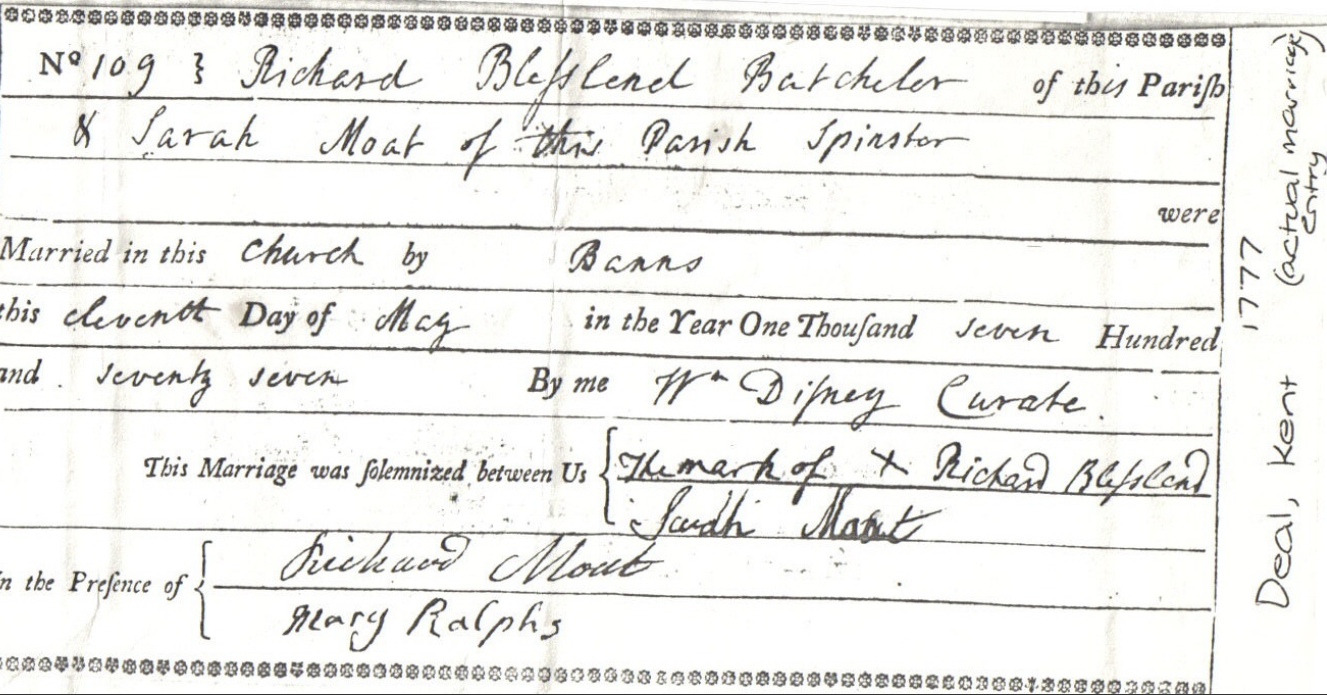 Nº 109 } Richard Bleſslend Batchelor of this Pariſh
& Sarah Moat of this Parish Spinster
were
Married in this Church by Banns
this eleventh Day of May in the Year One Thouſand seven Hundred
and seventy seven By me Wm Diſney Curate.
This Marriage was ſolemnized between Us { The mark of X Richard Bleſsland
Sarah Moat
In the Preſence of { Richard Moat
Mary Ralphs
Deal, Kent 1777 (actual marriage entry)